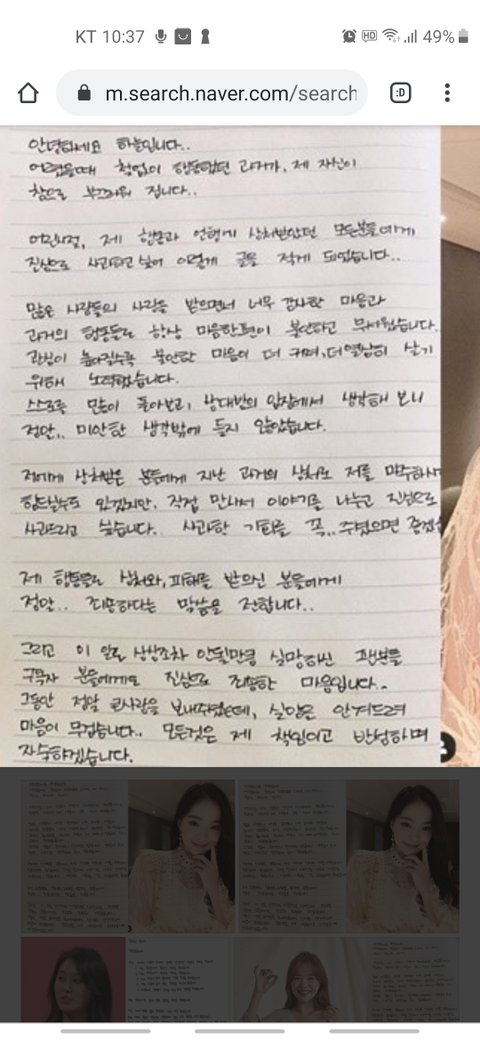 KT 10:37
HD
49%
m.search.naver.com/search
:D
안녕하세요 하늘입니다..
어렸을때 철없이 행동했던 과거가, 제 자신이
참으로 부끄러워 집니다..
어린시절, 제 행동과 언행에 상처받았던 모든분들에게
진심으로 사과하고 싶어 이렇게 글을 적게 되었습니다..
많은 사람들의 사랑을 받으면서 너무 감사한 마음과
과거의 행동들로 항상 마음한편이 불안하고 무서웠습니다.
관심이 높아질수록 불안한 마음이 더 커져, 더 열심히 살기
위해 노력했습니다.
스스로 많이 돌아보고, 상대방의 입장에서 생각해 보니
정말.. 미안한 생각밖에 들지 않았습니다.
저에게 상처받은 분들에게 지난 과거의 상처로 저를 마주하시
힘드실수도 있겠지만, 직접 만나서 이야기를 나누고 진심으로
사과드리고 싶습니다.. 사과할 기회를 꼭.. 주셨으면 좋겠
제 행동들로 상처와, 피해를 받으신 분들에게
정말.. 죄송하다는 말씀을 전합니다..
그리고 이 일로 상상조차 안될만큼 실망하신 팬분들
구독자 분들에게도 진심으로 죄송한 마음입니다..
그동안 정말 큰사랑을 보내주셨는데, 실망을 안겨드려
마음이 무겁습니다.. 모든것은 제 책임이고 반성하며
자숙하겠습니다.